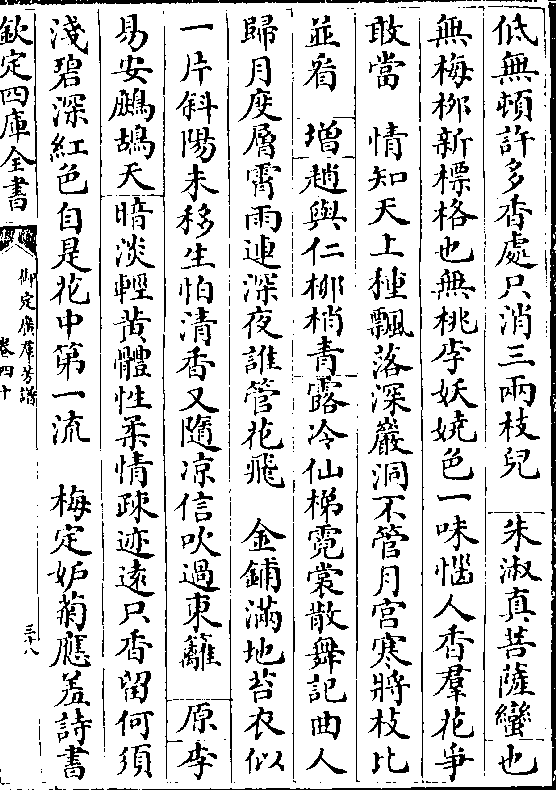 低無頓許多香處只消三兩枝兒　朱淑真菩薩蠻也
無梅栁新標格也無桃李妖嬈色一味惱人香羣花爭
敢當　情知天上種飄落深巖洞不管月宮寒將枝比
並看　增趙與仁栁梢青露冷仙梯霓裳散舞記曲人
歸月度層霄雨連深夜誰管花飛　金鋪滿地苔衣似
一片斜陽未移生怕清香又隨凉信吹過東籬　原李
易安鷓鴣天暗淡輕黄體性柔情踈迹逺只香留何須
淺碧深紅色自是花中第一流　梅定妒菊應羞詩書
欽定四庫全書　御定廣羣芳譜　卷四十　三十八